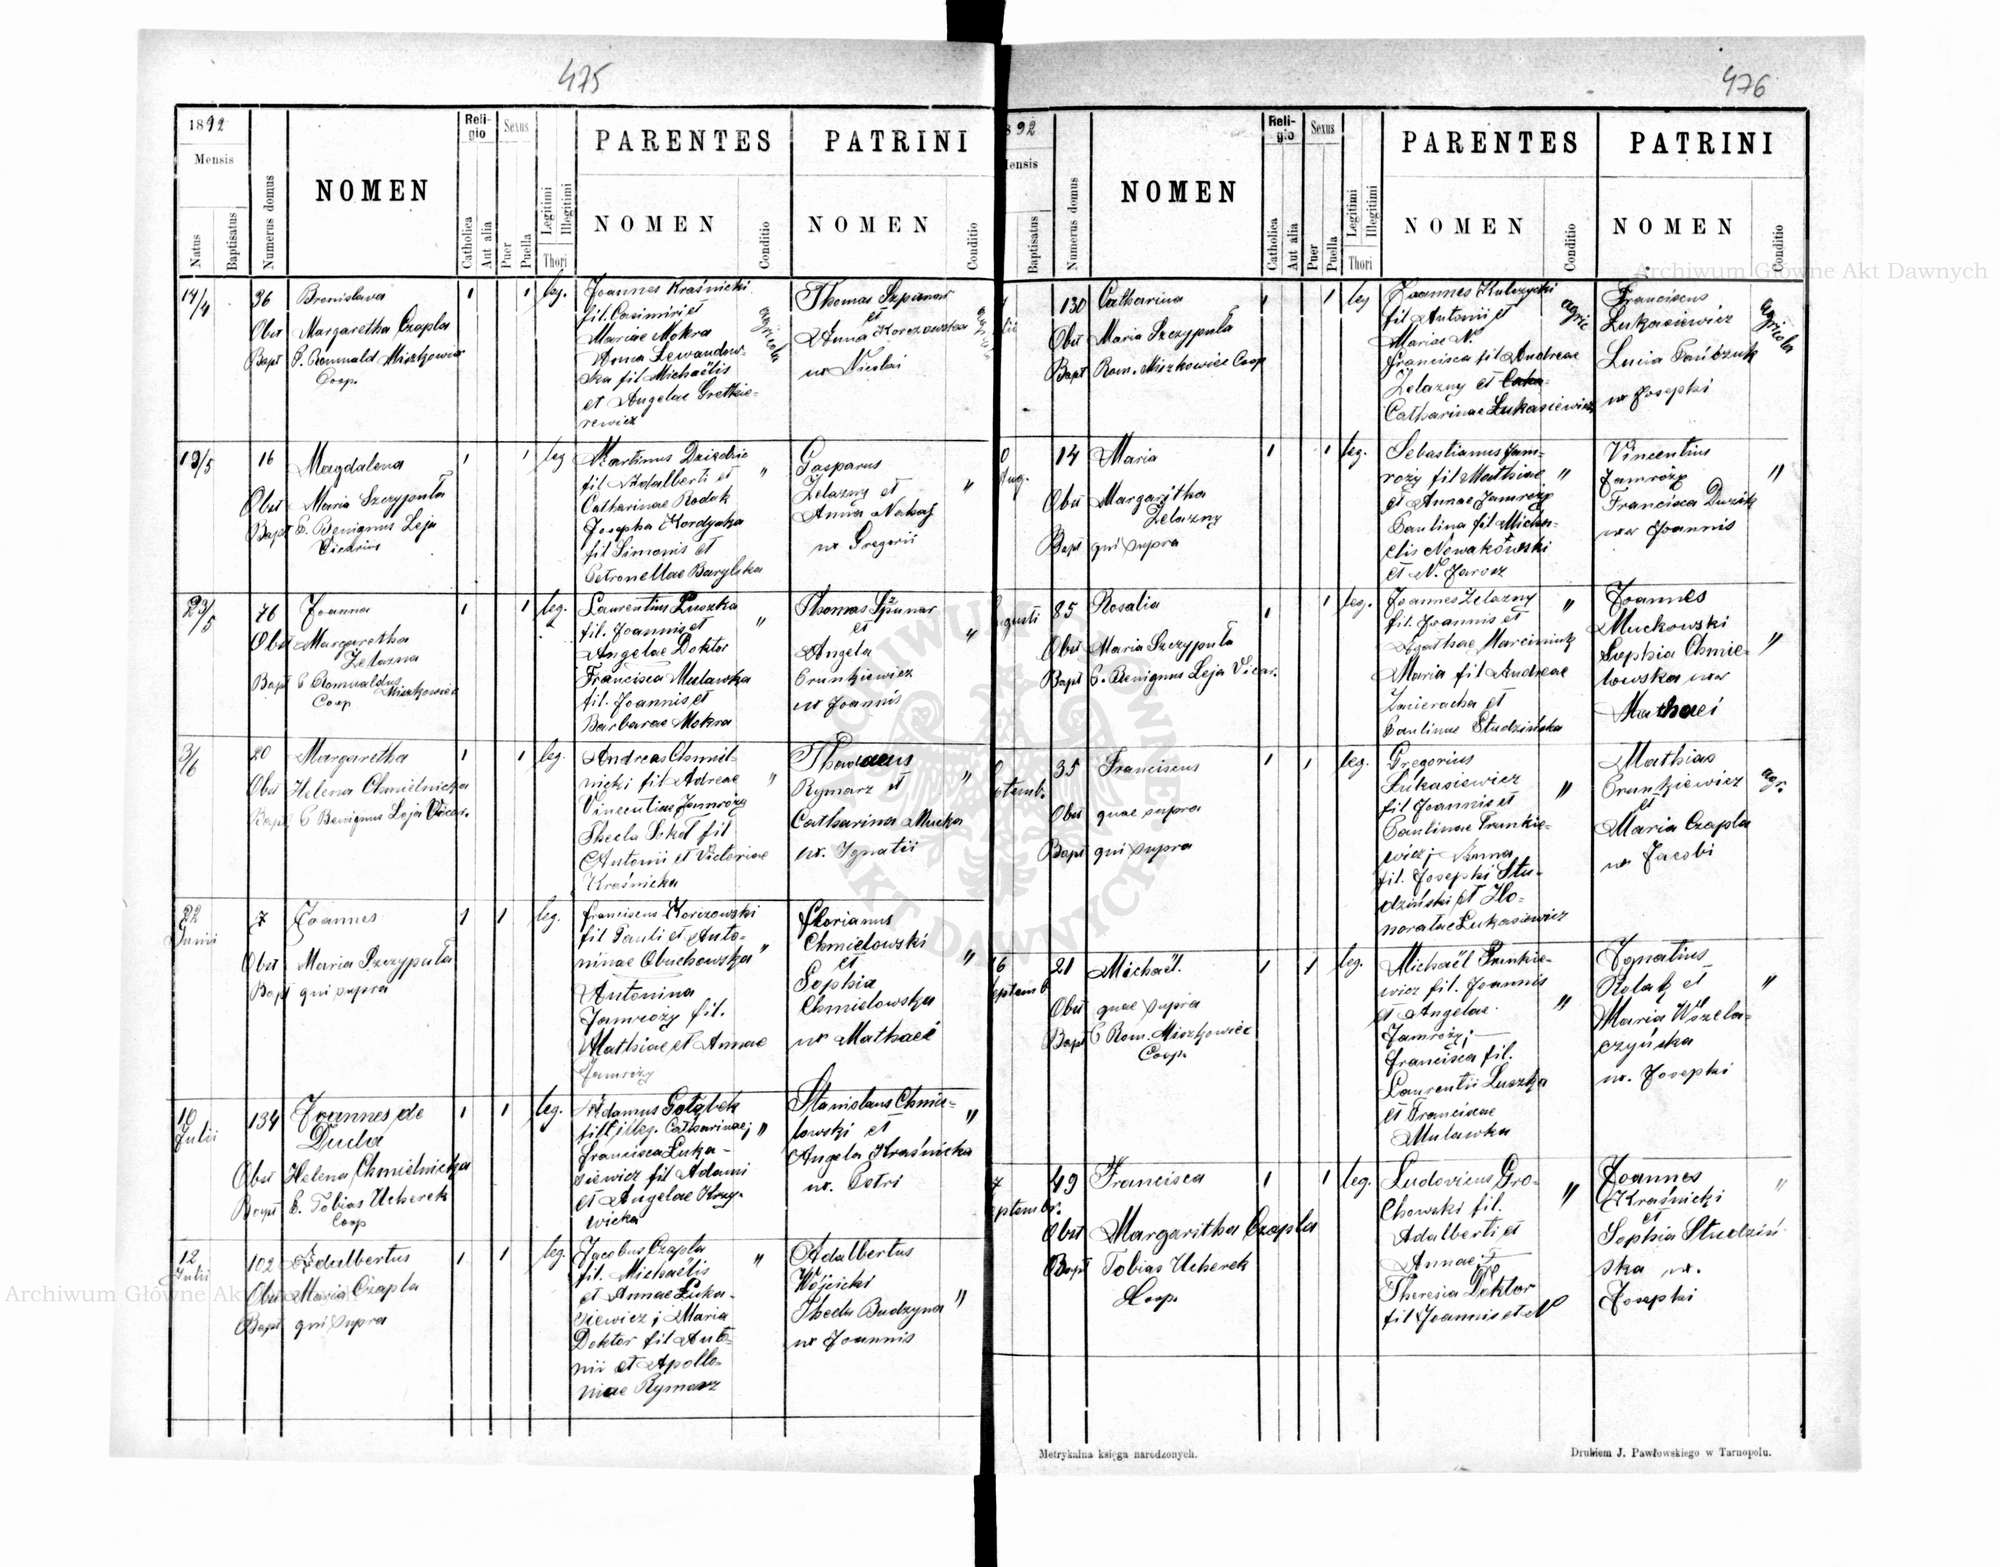 475
1892
Mensis
Natus
Baptisatus
Numerus domus
NOMEN
Religio
Catholica
Aut alia
Sexus
Puer
Puella
Legitimi
Illegitimi
Thori
PARENTES
NOMEN
Conditio
PATRINI
NOMEN
Conditio
14/4
36
Bronislava
Obst Margaretha Czapla
Bapt P. Romuald Miszkowicz
Coop.
1
1
leg.
Joannes Kraśnicki
fil. Casimiri et
Mariae Mokra
Anna Lewandow-
ska fil Michaëlis
et Angelae Gretkie-
rewicz
agricola
Thomas Szpunar
et
Anna Korczowska
ux Nicolai
16
Magdalena
Obst Maria Szczypuła
Bapt P. Benignus Leja
Vicarius
1
1
leg
Martinus Dziedzic
fil Adalberti et
Catharinae Rodak
Josepha Kordyaka
fil Simonis et
Petronellae Barylska
"
Gasparus
Żelazny et
Anna
ux Gregorii
"
23/5
76
Joanna
Obst Margaretha
Żelazna
Bapt P Romualdus
Miszkowicz
Coop
1
1
leg.
Laurentius Luszka
fil. Joannis et
Angelae Doktor
Francisca Mulawka
fil. Joannis et
Barbarae Mokra
"
Thomas Szpunar
et
Angela
Prunkiewicz
ux Joannis
"
3/6
20
Margaretha
Obst Helena Chmielnicka
Bapt P Benignus Leja Vicar.
1
1
leg.
Andreas Chmiel-
nicki fil Adreae
Vincentiae Jamroży
Thecla Sokół fil
Antonii et Victoriae
Kraśnicka
"
Thadaeus
Rymarz et
Catharina Mucka
ux. Ignatii
"
22
Junii
7
Joannes
Obst Maria Szczypuła
Bapt qui supra
1
1
leg.
Franciscus Korczowski
fil Pauli et Anto-
ninae Obuchowska
Antonina
Jamroży fil.
Mathiae et Annae
Jamroży
"
Florianus
Chmielowski
et
Sophia
Chmielowska
ux Mathaei
"
10
Julii
134
Joannes de
Dukla
Obst Helena Chmielnicka
Bapt P. Tobias Ucherek
Coop
1
1
leg.
Adamus Gołąbek
fil illeg. Catharinae;
Francisca Łuka-
siewicz fil Adami
et Angelae Krzy-
wicka
"
Stanislaus Chmie-
lowski et
Angela Kraśnicka
ux. Petri
"
12
Julii
102
Adalbertus
Obst Maria Czapla
Bapt qui supra
1
1
leg
Jacobus Czapla
fil. Michaëlis
et Annae Łuka-
siewicz; Maria
Doktor fil Anto-
nii et Apollo-
niae Rymarz
"
Adalbertus
Wójcicki
Thecla Budzyna
ux Joannis
"
476
892
ensis
Baptisatus
Numerus domus
NOMEN
Religio
Catholica
Aut alia
Sexus
Puer
Puella
Legitimi
Illegitimi
Thori
PARENTES
NOMEN
Conditio
PATRINI
NOMEN
Conditio
130
Catharina
Obst Maria Szczypuła
Bapt Rom. Miszkowicz Coop
1
1
leg
Joannes Kulczycki
fil Antonii et
Mariae N.
Francisca fil Andreae
Żelazny et
Catharinae Łukasiewicz
agric
Franciscus
Łukasiewicz
Lucia Pańczuk
ux Josephi
agricola
ug.
14
Maria
Obst Margaritha
Żelazny
Bapt qui supra
1
1
leg.
Sebastianus Jam-
roży fil Mathiae
et Annae Jamroży
Paulina fil Micha-
elis Nowakowski
et N. Jarosz
"
Vincentius
Jamroży
Francisca Duzik
uxor Joannis
"
ugusti
85
Rosalia
Obst Maria Szczypuła
Bapt P. Benignus Leja Vicar.
1
1
leg.
Joannes Żelazny
fil. Joannis et
Agathae Marciniuk
Maria fil Andreae
Zacieracha et
Paulinae Studzińska
"
Joannes
Muckowski
Sophia Chmie-
lowska uxor
Mathaei
"
temb.
35
Franciscus
Obst quae supra
Bapt qui supra
1
1
leg.
Gregorius
Łukasiewicz
fil Joannis et
Paulinae Prunkie-
wicz; Anna
fil. Josephi Stu-
dziński et Ho-
noratae Łukasiewicz
"
Mathias
Prunkiewicz
et
Maria Czapla
ux Jacobi
agr.
16
eptemb
21
Michaël.
Obst quae supra
Bapt P Rom. Miszkowicz
Coop.
1
1
leg.
Michaël Prunkie-
wicz fil. Joannis
et Angelae
Jamroży;
Francisca fil.
Laurentii Luszka
et Franciscae
Mulawka
"
Ignatius
Rolak et
Maria Wszela-
czyńska
ux. Josephi
"
eptembr.
49
Francisca
Obst Margaritha Czapla
Bapt Tobias Ucherek
Coop.
1
1
leg.
Ludovicus Gro-
chowski fil.
Adalberti et
Annae
Theresia Doktor
fil Joannis et N
"
Joannes
Kraśnicki
et
Sophia Studziń
ska ux.
Josephi
"
Metrykalna księga narodzonych.
Drukiem J. Pawłowskiego w Tarnopolu.
Archiwum Główne Akt Dawnych
Archiwum Główne Ak
ARCHIWUM GŁÓWNE AKT DAWNYCH